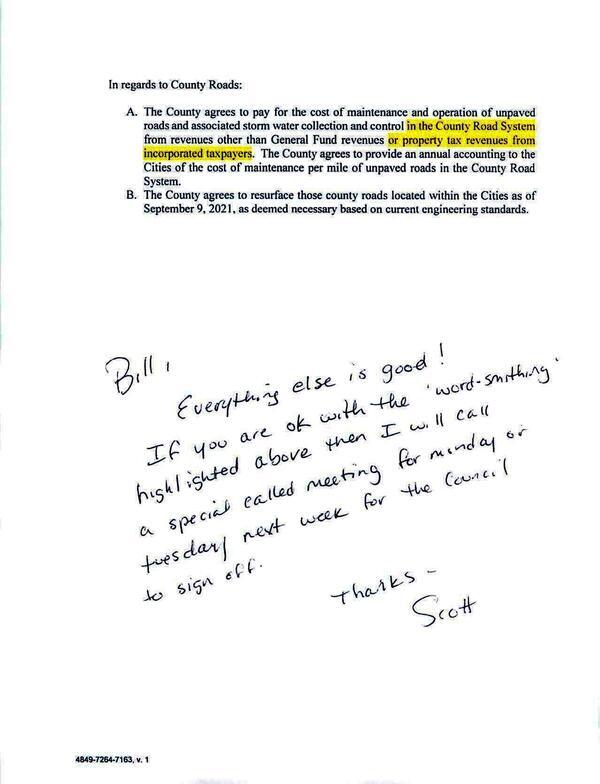 In regards to County Roads:
A. The County agrees to pay for the cost of maintenance and operation of unpaved
roads and associated storm water collection and control in the County Road System
from revenues other than General Fund revenues or property tax revenues from
incorporated taxpayers. The County agrees to provide an annual accounting to the
Cities of the cost of maintenance per mile of unpaved roads in the County Road
System.
B. The County agrees to resurface those county roads located within the Cities as of
September 9, 2021, as deemed necessary based on current engineering standards.
Bill,
Everything else is good!
If you are ok with the 'word-smithing'
highlighted above then I will call
a special called meeting for monday or
tuesday next week for the Council
to sign off.
Thanks -
Scott
4849-7264-7163, v. 1